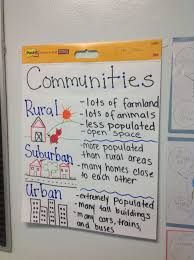 Post-it
Communities
Rural
- lots of farmland
- lots of animals
- less populated
- open space
Suburban
- more populated
than rural areas
- many homes close
to each other
Urban
- extremely populated
- many tall buildings
- many cars, trains,
and buses